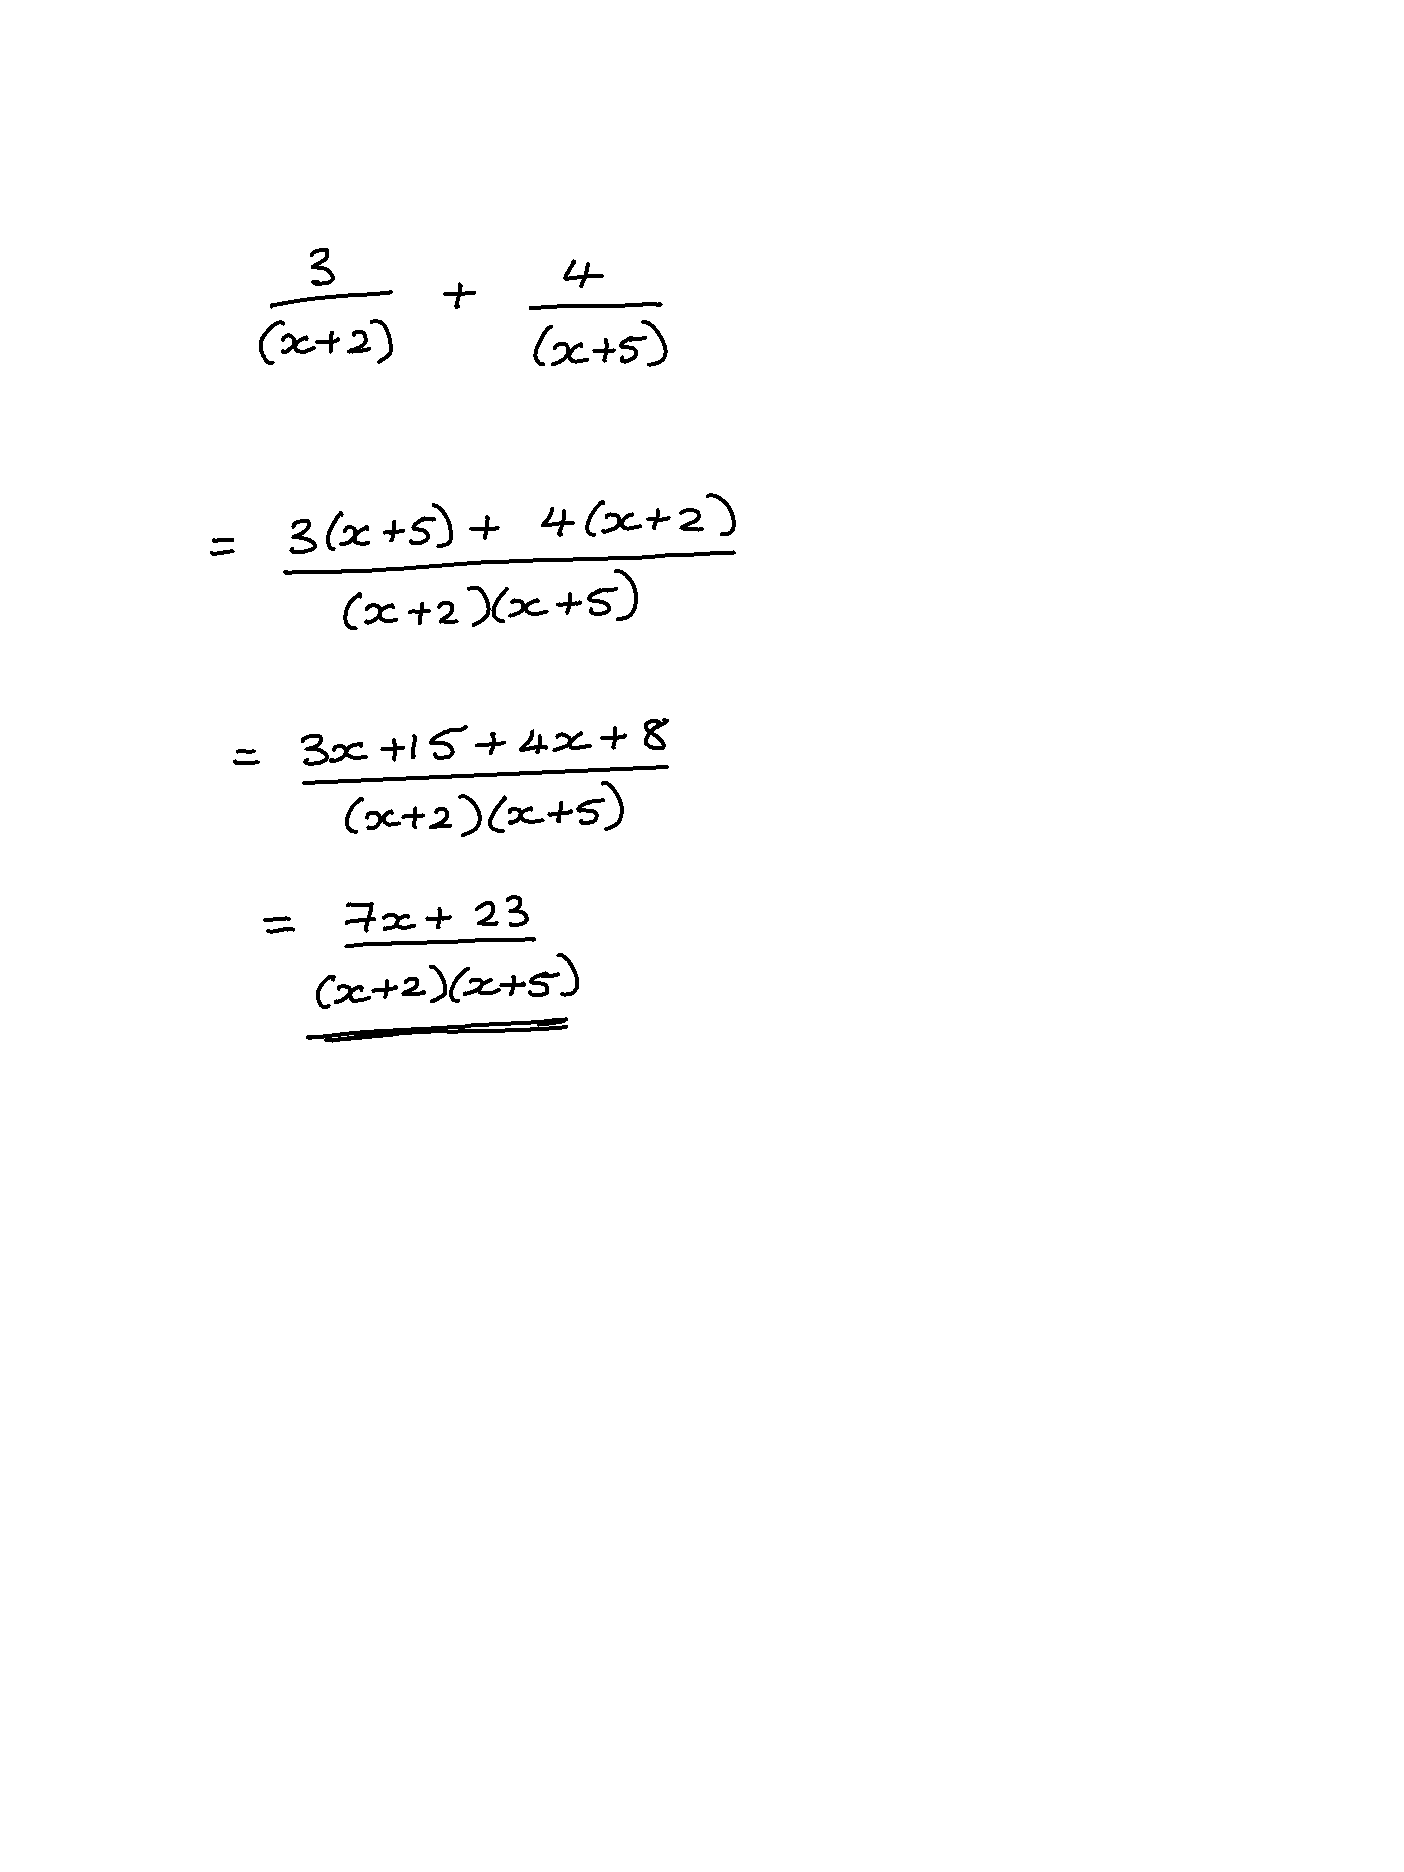 3/(x+2) + 4/(x+5)
= (3(x+5) + 4(x+2))/((x+2)(x+5))
= (3x+15+4x+8)/((x+2)(x+5))
= (7x+23)/((x+2)(x+5))